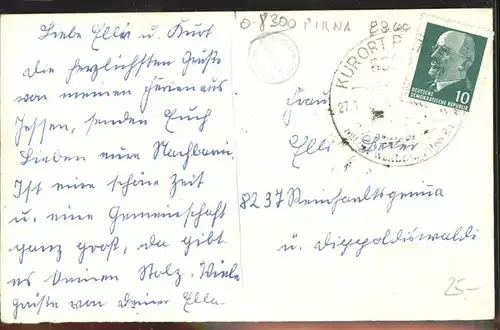 O-8300 PIRNA
Liebe Elli u. Kurt
Die herzlichsten Grüße
von meinen Ferien aus
Jessen, senden Euch
Lieben eure Nachbarin.
Ist eine schöne Zeit
u. eine Gemeinschaft
ganz groß, da gibt
es keinen Stolz. Viele
Grüße von Deiner Ella.
KURORT
27.1
DEUTSCHE
DEMOKRATISCHE REPUBLIK
10
Frau
Elli
8237 Reinhardtsgrima
ü. Dippoldiswalde
25.-